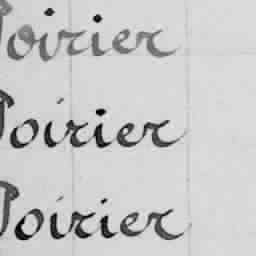 Poirier
Poirier
Poirier